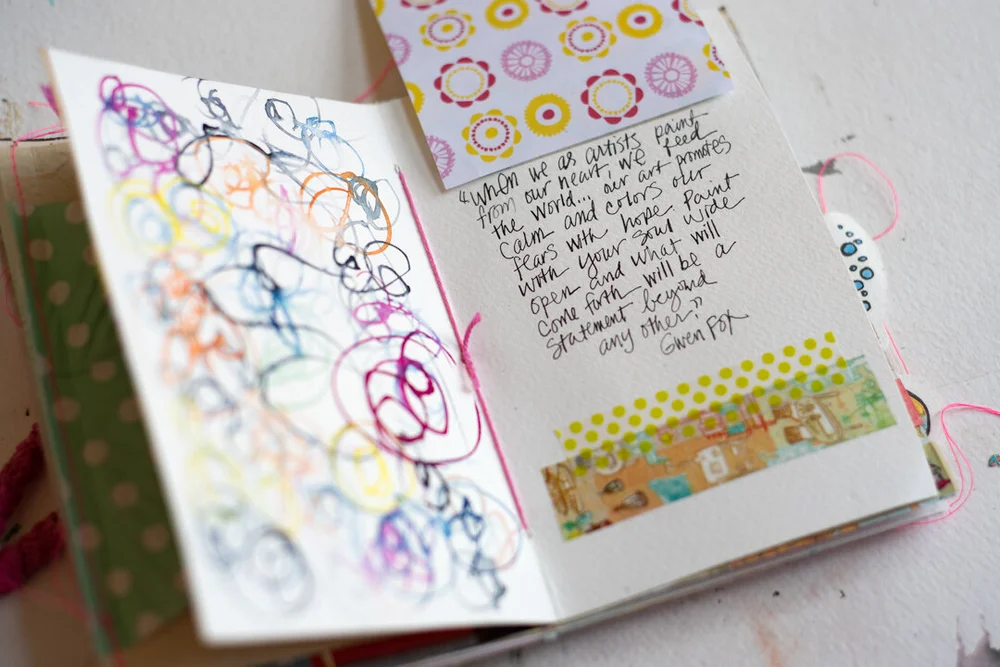 "When we as artists paint
from our heart, we feed
the world... our art promotes
calm and colors our
fears with hope. Paint
with your soul wide
open and what will
come forth will be a
statement beyond
any other."
Gwen Fox